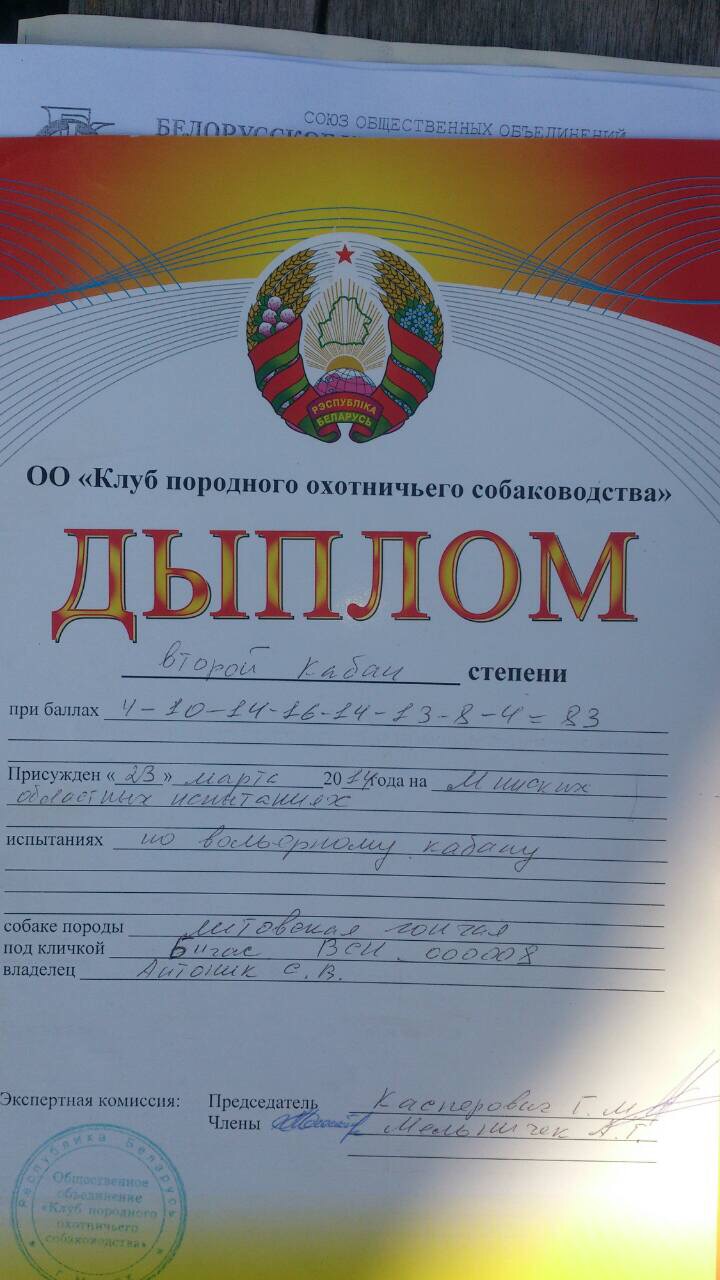 СОЮЗ ОБЩЕСТВЕННЫХ ОБЪЕДИНЕНИЙ
БЕЛОРУССКОЕ
РЭСПУБЛІКА
БЕЛАРУСЬ
ОО «Клуб породного охотничьего собаководства»
ДЫПЛОМ
второй кабан степени
при баллах 4-10-14-16-14-13-8-4=83
Присужден «23» марта 2014года на Минских
областных испытаниях
испытаниях по вольерному кабану
собаке породы литовская гончая
под кличкой Бигас ВСН 000008
владелец Антоник С.В.
Экспертная комиссия: Председатель Касперович Г.М.
Члены Мельничек А.Г.
Республика Беларусь
Общественное
объединение
«Клуб породного
охотничьего
собаководства»